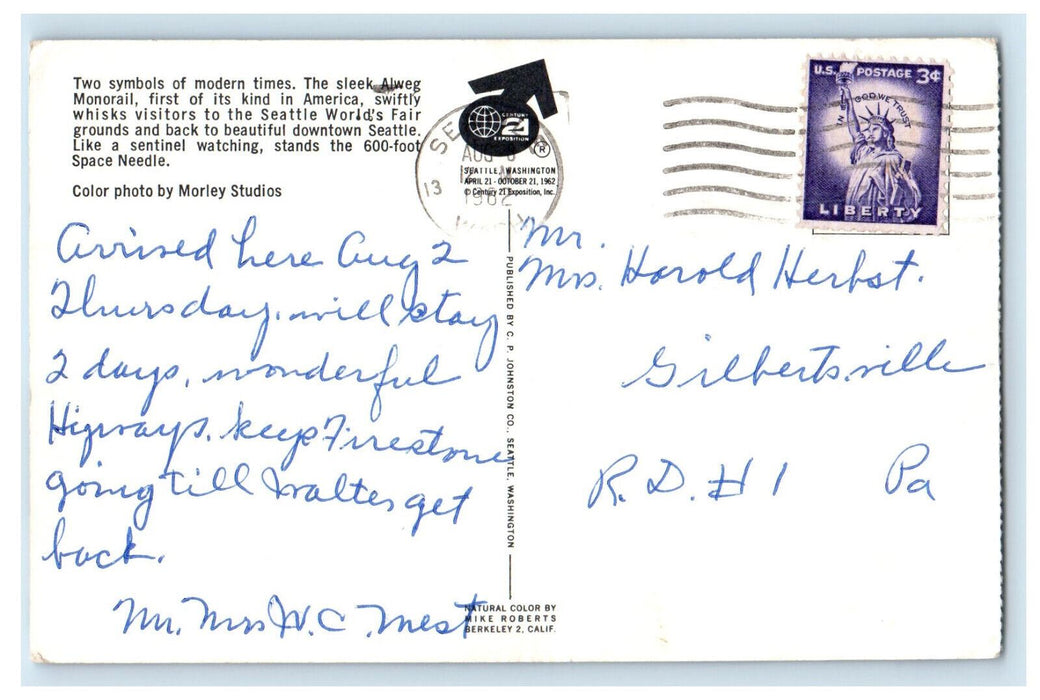 Two symbols of modern times. The sleek Alweg
Monorail, first of its kind in America, swiftly
whisks visitors to the Seattle World's Fair
grounds and back to beautiful downtown Seattle.
Like a sentinel watching, stands the 600-foot
Space Needle.
Color photo by Morley Studios
CENTURY
21
EXPOSITION
®
SEATTLE, WASHINGTON
APRIL 21 - OCTOBER 21, 1962
© Century 21 Exposition, Inc.
SE
AUG
13
1962
U.S. POSTAGE 3¢
IN GOD WE TRUST
LIBERTY
Arrived here Aug 2
Thursday. will stay
2 days, wonderful
Higways. keep Firestone
going till Walter get
back.
Mr. Mrs W. C. Mest
Mr.
Mrs. Harold Herbst.
Gilbertsville
R. D. # 1 Pa
PUBLISHED BY C. P. JOHNSTON CO., SEATTLE, WASHINGTON
NATURAL COLOR BY
MIKE ROBERTS
BERKELEY 2, CALIF.